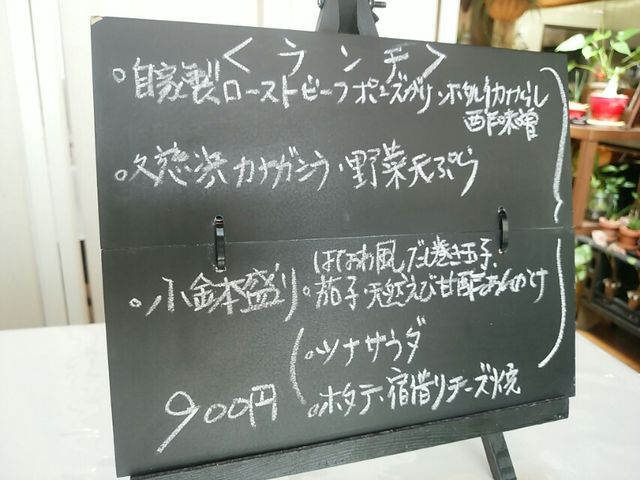 <ランチ>
○自家製ローストビーフポン酢がけ・ホタルイカからし
酢味噌
○久慈浜カナガシラ・野菜天ぷら
はなわ風だし巻き玉子
○小鉢盛り○茄子・天然えび甘酢あんかけ
○ツナサラダ
○ホタテ宿借りチーズ焼
900円